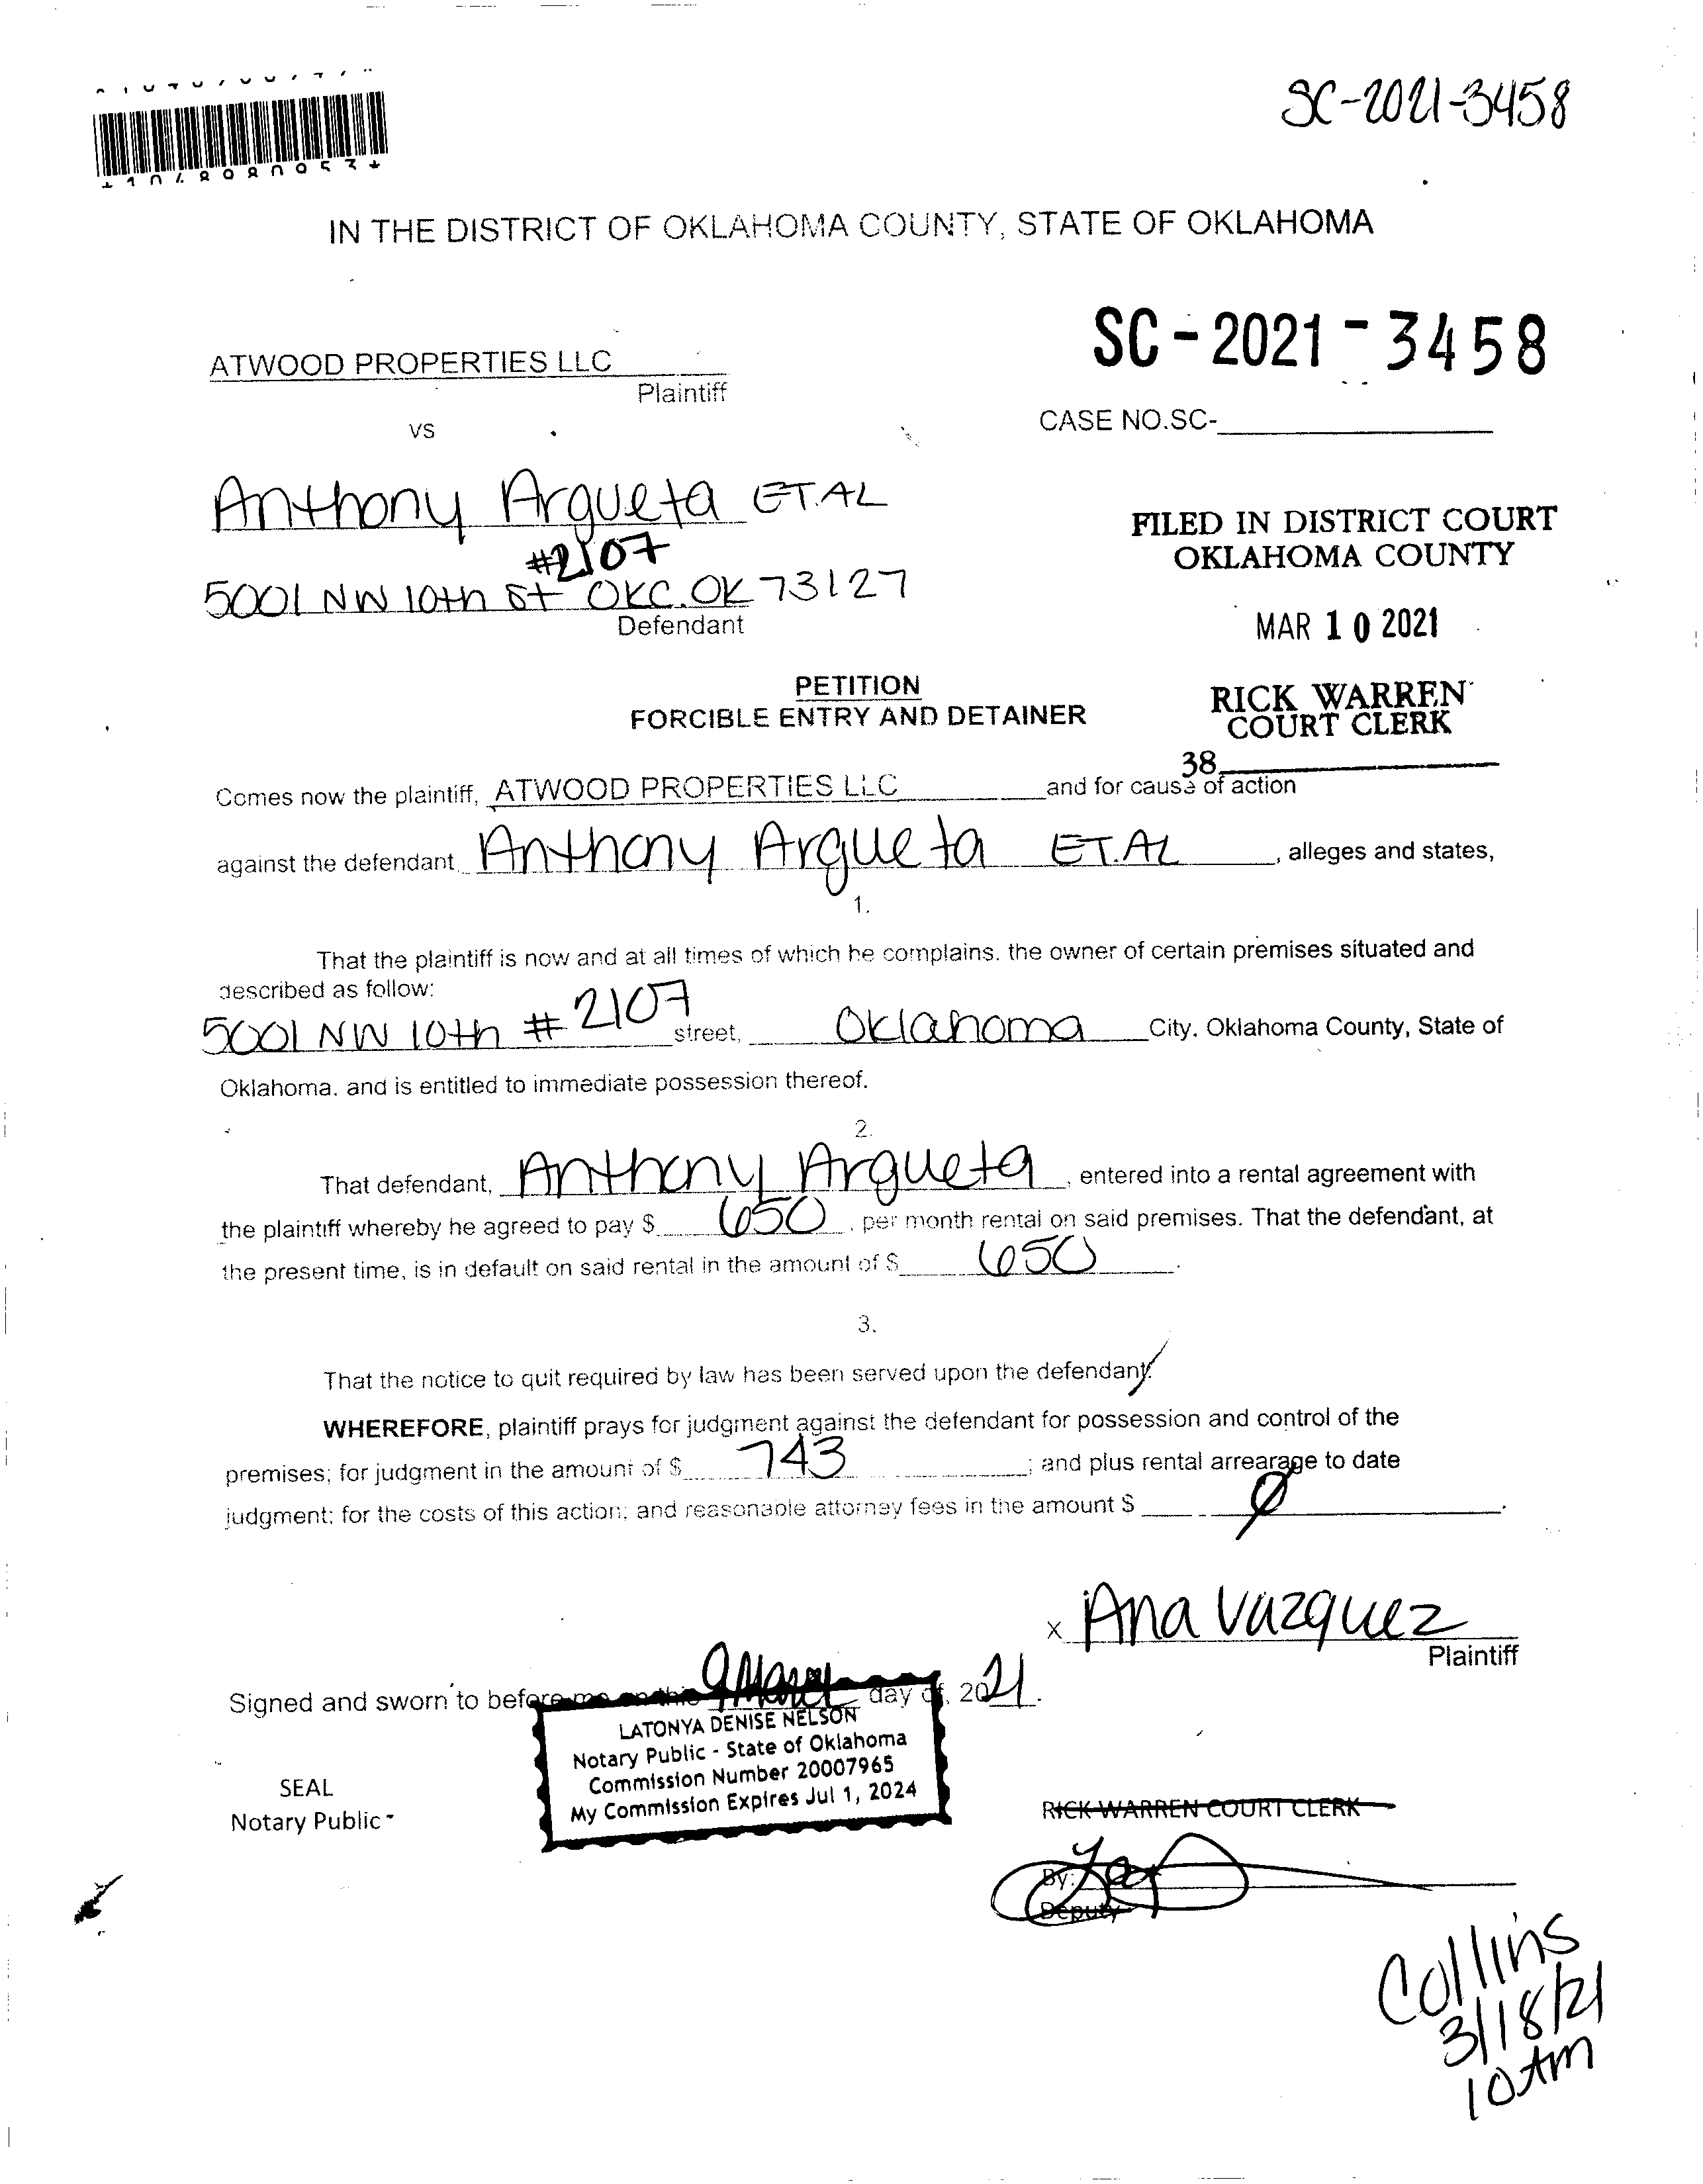 SC-2021-3458
IN THE DISTRICT OF OKLAHOMA COUNTY, STATE OF OKLAHOMA
SC-2021-3458
ATWOOD PROPERTIES LLC
Plaintiff
CASE NO.SC-
VS
Anthony Argueta ET.AL
#2107
5001 NW 10th St OKC.OK 73127
Defendant
FILED IN DISTRICT COURT
OKLAHOMA COUNTY
MAR 10 2021
RICK WARREN
COURT CLERK
38
PETITION
FORCIBLE ENTRY AND DETAINER
Comes now the plaintiff, ATWOOD PROPERTIES LLC and for cause of action
against the defendant Anthony Argueta ET.AL, alleges and states,
1.
That the plaintiff is now and at all times of which he complains. the owner of certain premises situated and
described as follow:
5001 NW 10th # 2107 street, Oklahoma City. Oklahoma County, State of
Oklahoma. and is entitled to immediate possession thereof.
2.
That defendant, Anthony Argueta, entered into a rental agreement with
the plaintiff whereby he agreed to pay $ 650, per month rental on said premises. That the defendant, at
the present time, is in default on said rental in the amount of $ 650.
3.
That the notice to quit required by law has been served upon the defendant.
WHEREFORE, plaintiff prays for judgment against the defendant for possession and control of the
premises; for judgment in the amount of $ 743; and plus rental arrearage to date
judgment; for the costs of this action; and reasonable attorney fees in the amount $ Ø.
x Ana Vazquez
Plaintiff
Signed and sworn to before me on this 9 March day of, 2021.
LATONYA DENISE NELSON
Notary Public - State of Oklahoma
Commission Number 20007965
My Commission Expires Jul 1, 2024
SEAL
Notary Public -
RICK WARREN COURT CLERK
By:
Deputy
Collins
3/18/21
10 Am